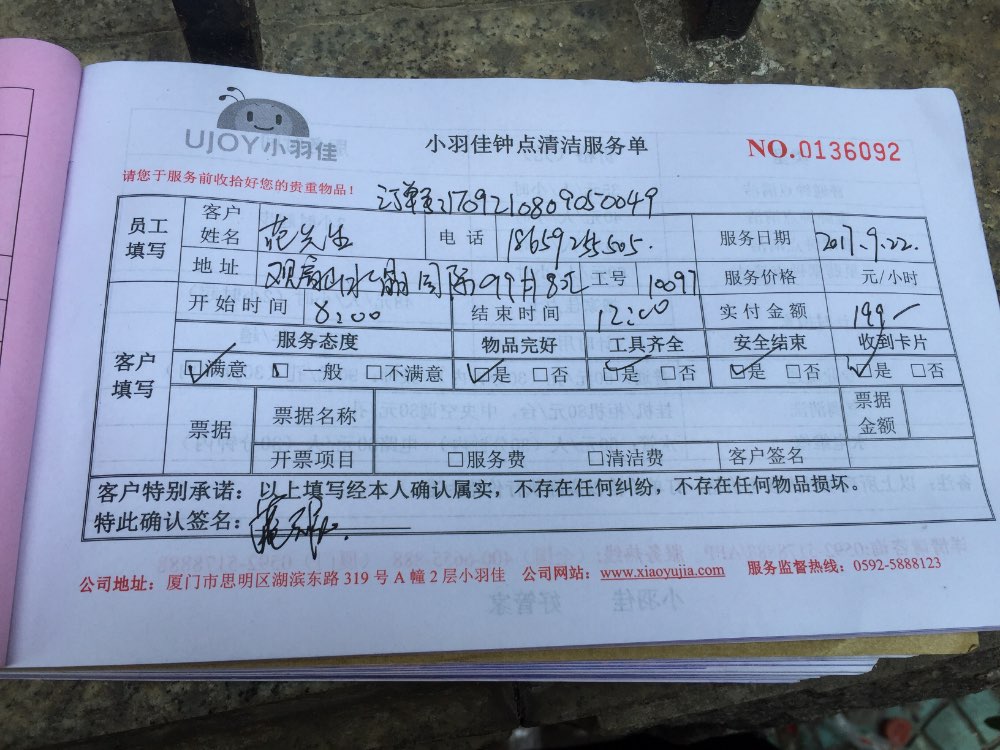 UJOY小羽佳
小羽佳钟点清洁服务单
NO.0136092
请您于服务前收拾好您的贵重物品！
订单号21709210809050049
员工填写 客户姓名 范先生 电话 18659255505. 服务日期 2017.9.22.
地址 观 水晶国际 工号 10097 服务价格 元/小时
客户填写 开始时间 8:00 结束时间 12:00 实付金额 199-
服务态度 物品完好 工具齐全 安全结束 收到卡片
☑满意 □一般 □不满意 ☑是 □否 ☑是 □否 ☑是 □否 ☑是 □否
票据 票据名称 票据金额
开票项目 □服务费 □清洁费 客户签名
客户特别承诺：以上填写经本人确认属实，不存在任何纠纷，不存在任何物品损坏。
特此确认签名：
公司地址：厦门市思明区湖滨东路 319 号 A 幢 2 层小羽佳 公司网站：www.xiaoyujia.com 服务监督热线：0592-5888123